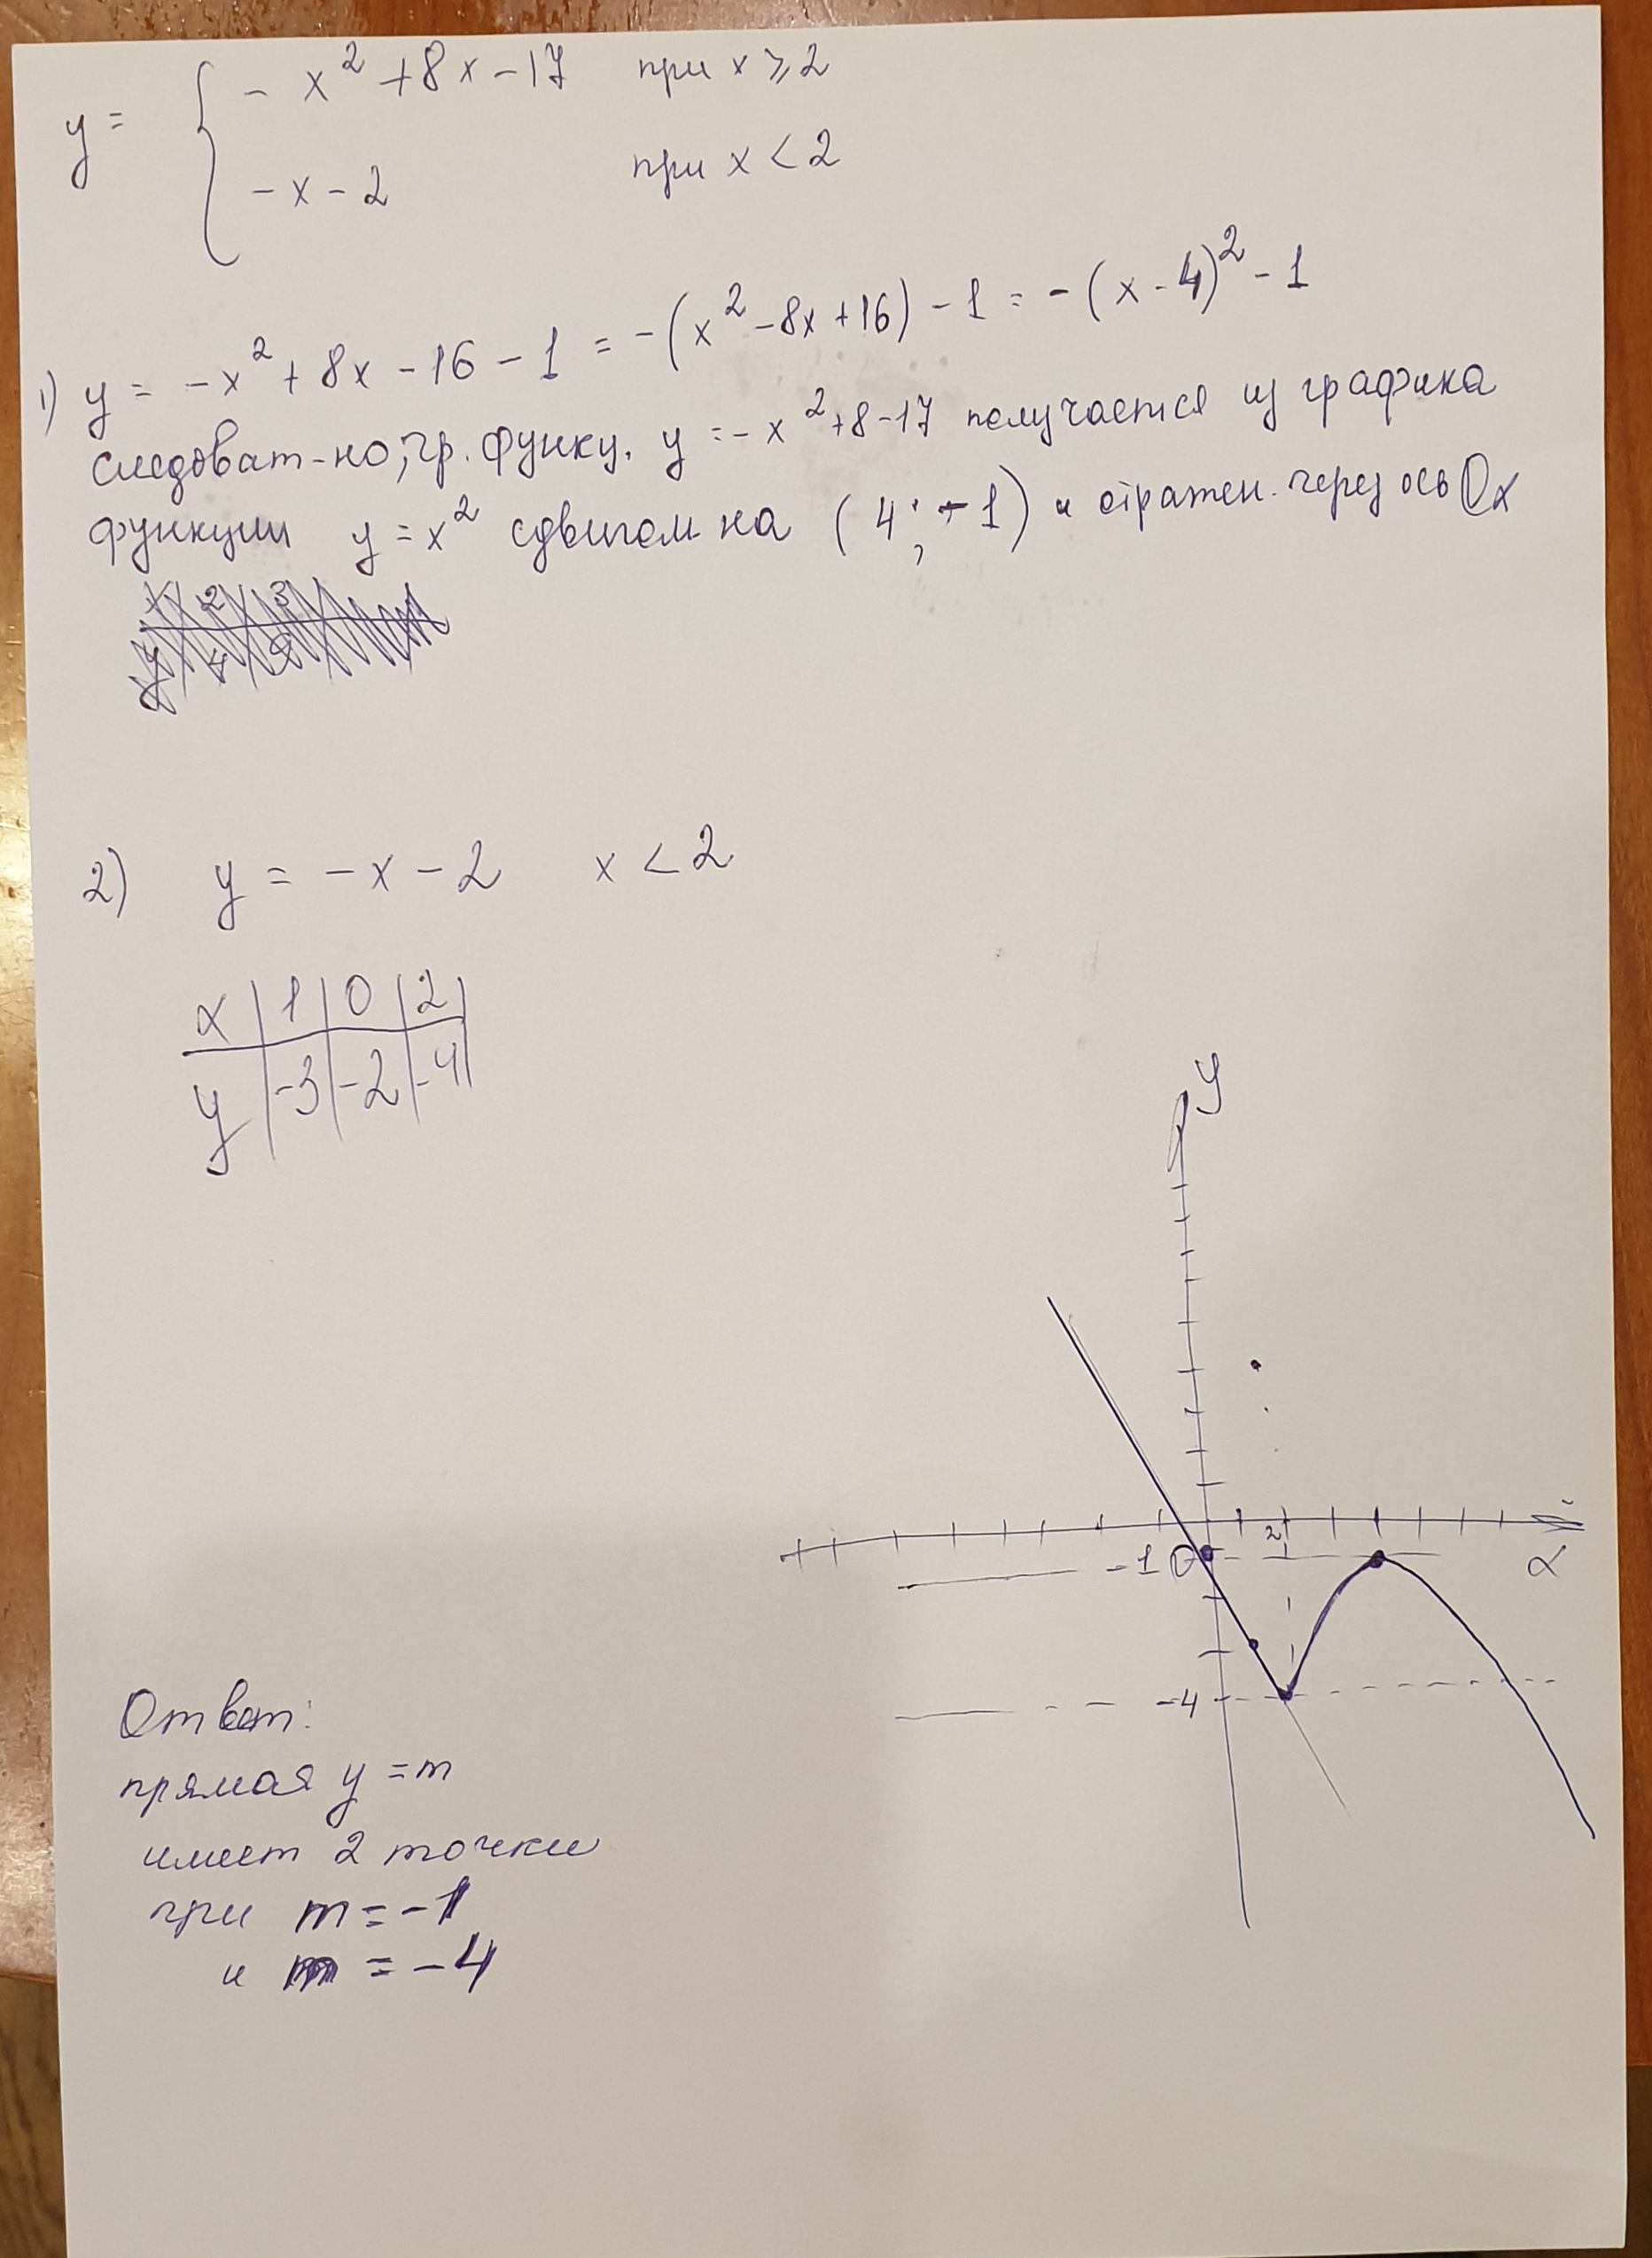 y = { - x² + 8x - 17 при x ⩾ 2
- x - 2 при x < 2
1) y = - x² + 8x - 16 - 1 = - (x² - 8x + 16) - 1 = - (x - 4)² - 1
следоват-но, гр. функц. y = - x² + 8 - 17 получается из графика
функции y = x² сдвигом на (4; -1) и отражен. через ось Ox
2) y = - x - 2 x < 2
x | 1 | 0 | 2 |
y | -3 | -2 | -4 |
y
2
-1 0 x
-4
Ответ:
прямая y = m
имеет 2 точки
при m = -1
и m = -4